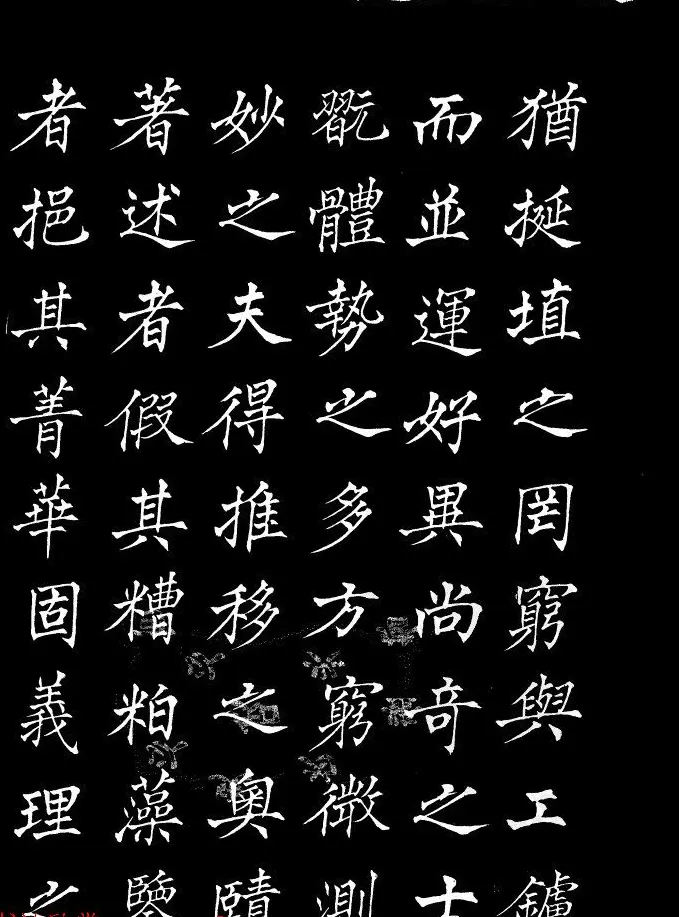 猶挻埴之罔窮與工鑪
而並運好異尚奇之士
翫體勢之多方窮微測
妙之夫得推移之奧賾
著述者假其糟粕藻鑒
者挹其菁華固義理之